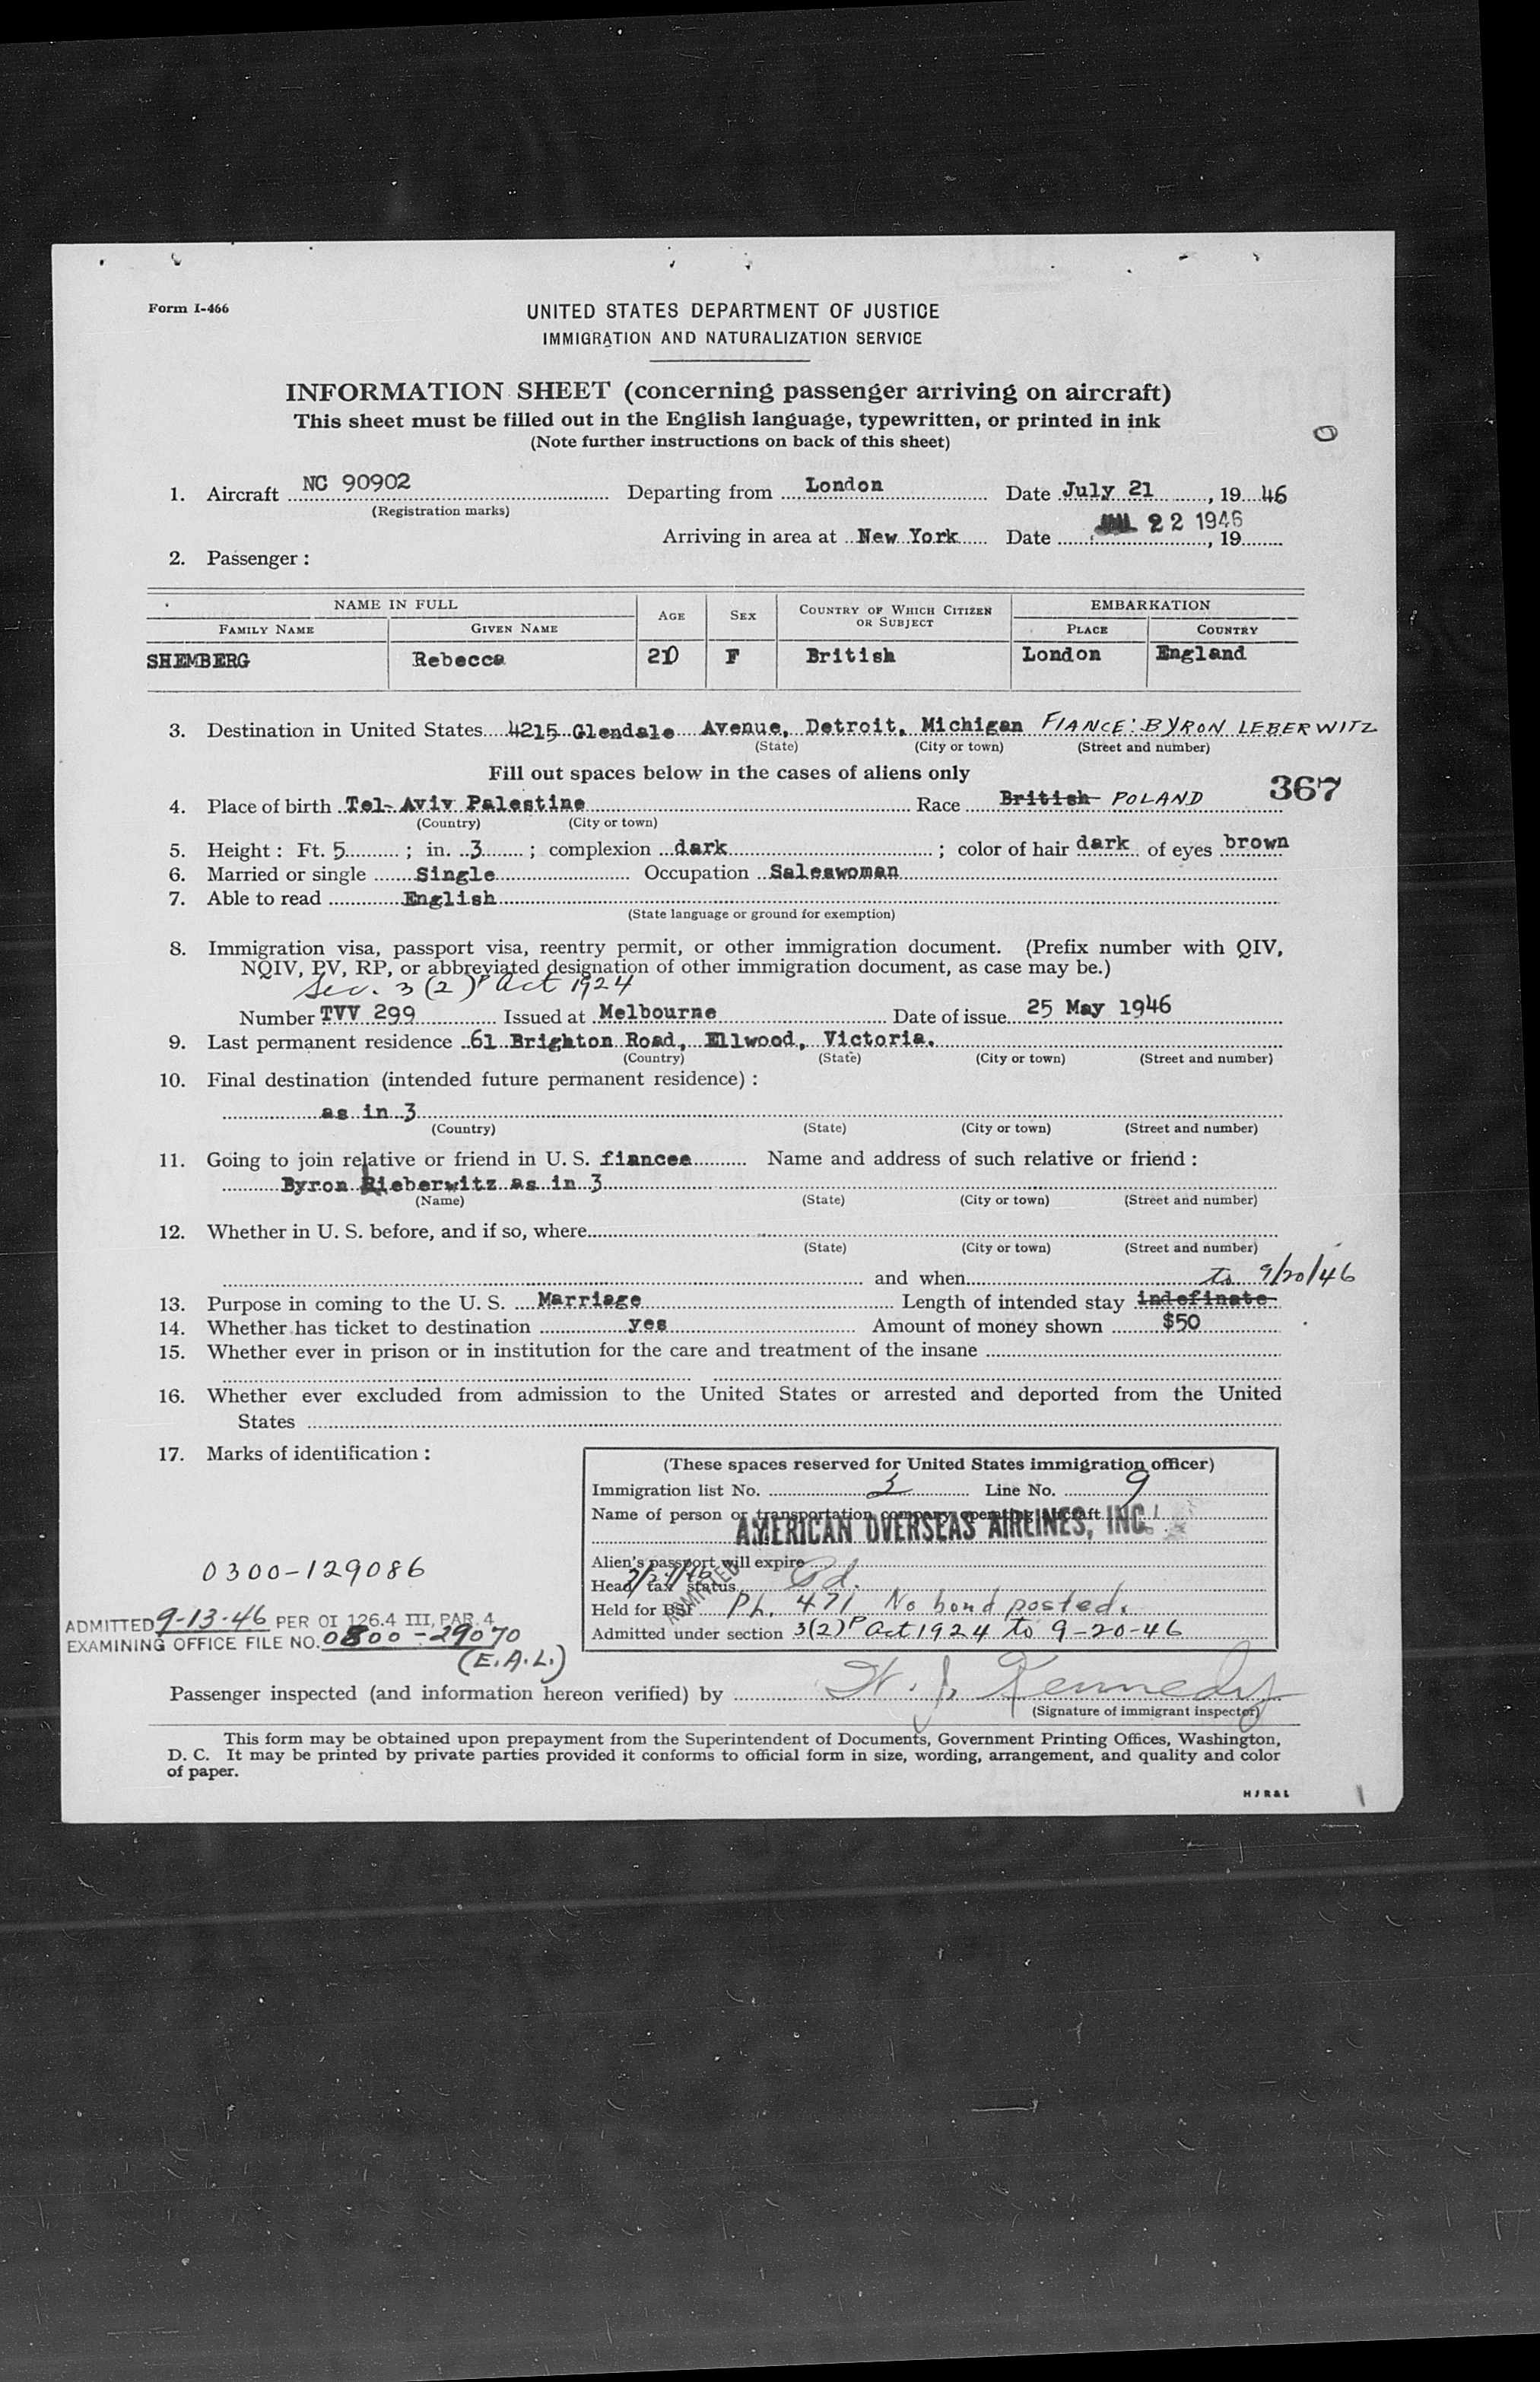 Form I-466
UNITED STATES DEPARTMENT OF JUSTICE
IMMIGRATION AND NATURALIZATION SERVICE
INFORMATION SHEET (concerning passenger arriving on aircraft)
This sheet must be filled out in the English language, typewritten, or printed in ink
(Note further instructions on back of this sheet)
1. Aircraft NC 90902 Departing from London Date July 21, 1946
(Registration marks)
Arriving in area at New York Date JUL 22 1946, 19
2. Passenger:
NAME IN FULL AGE SEX COUNTRY OF WHICH CITIZEN OR SUBJECT EMBARKATION
FAMILY NAME GIVEN NAME PLACE COUNTRY
SHEMBERG Rebecca 20 F British London England
3. Destination in United States 4215 Glendale Avenue, Detroit, Michigan FIANCE: BYRON LEBERWITZ
(State) (City or town) (Street and number)
Fill out spaces below in the cases of aliens only
367
4. Place of birth Tel-Aviv Palestine Race British POLAND
(Country) (City or town)
5. Height: Ft. 5; in. 3; complexion dark; color of hair dark of eyes brown
6. Married or single Single Occupation Saleswoman
7. Able to read English
(State language or ground for exemption)
8. Immigration visa, passport visa, reentry permit, or other immigration document. (Prefix number with QIV,
NQIV, PV, RP, or abbreviated designation of other immigration document, as case may be.)
Sec. 3 (2) P Act 1924
Number TVV 299 Issued at Melbourne Date of issue 25 May 1946
9. Last permanent residence 61 Brighton Road, Ellwood, Victoria.
(Country) (State) (City or town) (Street and number)
10. Final destination (intended future permanent residence):
as in 3
(Country) (State) (City or town) (Street and number)
11. Going to join relative or friend in U. S. fiancee Name and address of such relative or friend:
Byron Lieberwitz as in 3
(Name) (State) (City or town) (Street and number)
12. Whether in U. S. before, and if so, where
(State) (City or town) (Street and number)
and when to 9/20/46
13. Purpose in coming to the U. S. Marriage Length of intended stay indefinate
14. Whether has ticket to destination yes Amount of money shown $50
15. Whether ever in prison or in institution for the care and treatment of the insane
16. Whether ever excluded from admission to the United States or arrested and deported from the United
States
17. Marks of identification:
(These spaces reserved for United States immigration officer)
Immigration list No. 3 Line No. 9
Name of person or transportation company operating aircraft
AMERICAN OVERSEAS AIRLINES, INC.
Alien's passport will expire
Head tax status Pd.
ADMITTED
Held for BSI Ph. 471 No bond posted.
Admitted under section 3(2) P Act 1924 to 9-20-46
0300-129086
ADMITTED 9-13-46 PER OI 126.4 III, PAR. 4
EXAMINING OFFICE FILE NO. 0300-29070
(E.A.L.)
Passenger inspected (and information hereon verified) by W. J. Kennedy
(Signature of immigrant inspector)
This form may be obtained upon prepayment from the Superintendent of Documents, Government Printing Offices, Washington,
D. C. It may be printed by private parties provided it conforms to official form in size, wording, arrangement, and quality and color
of paper.